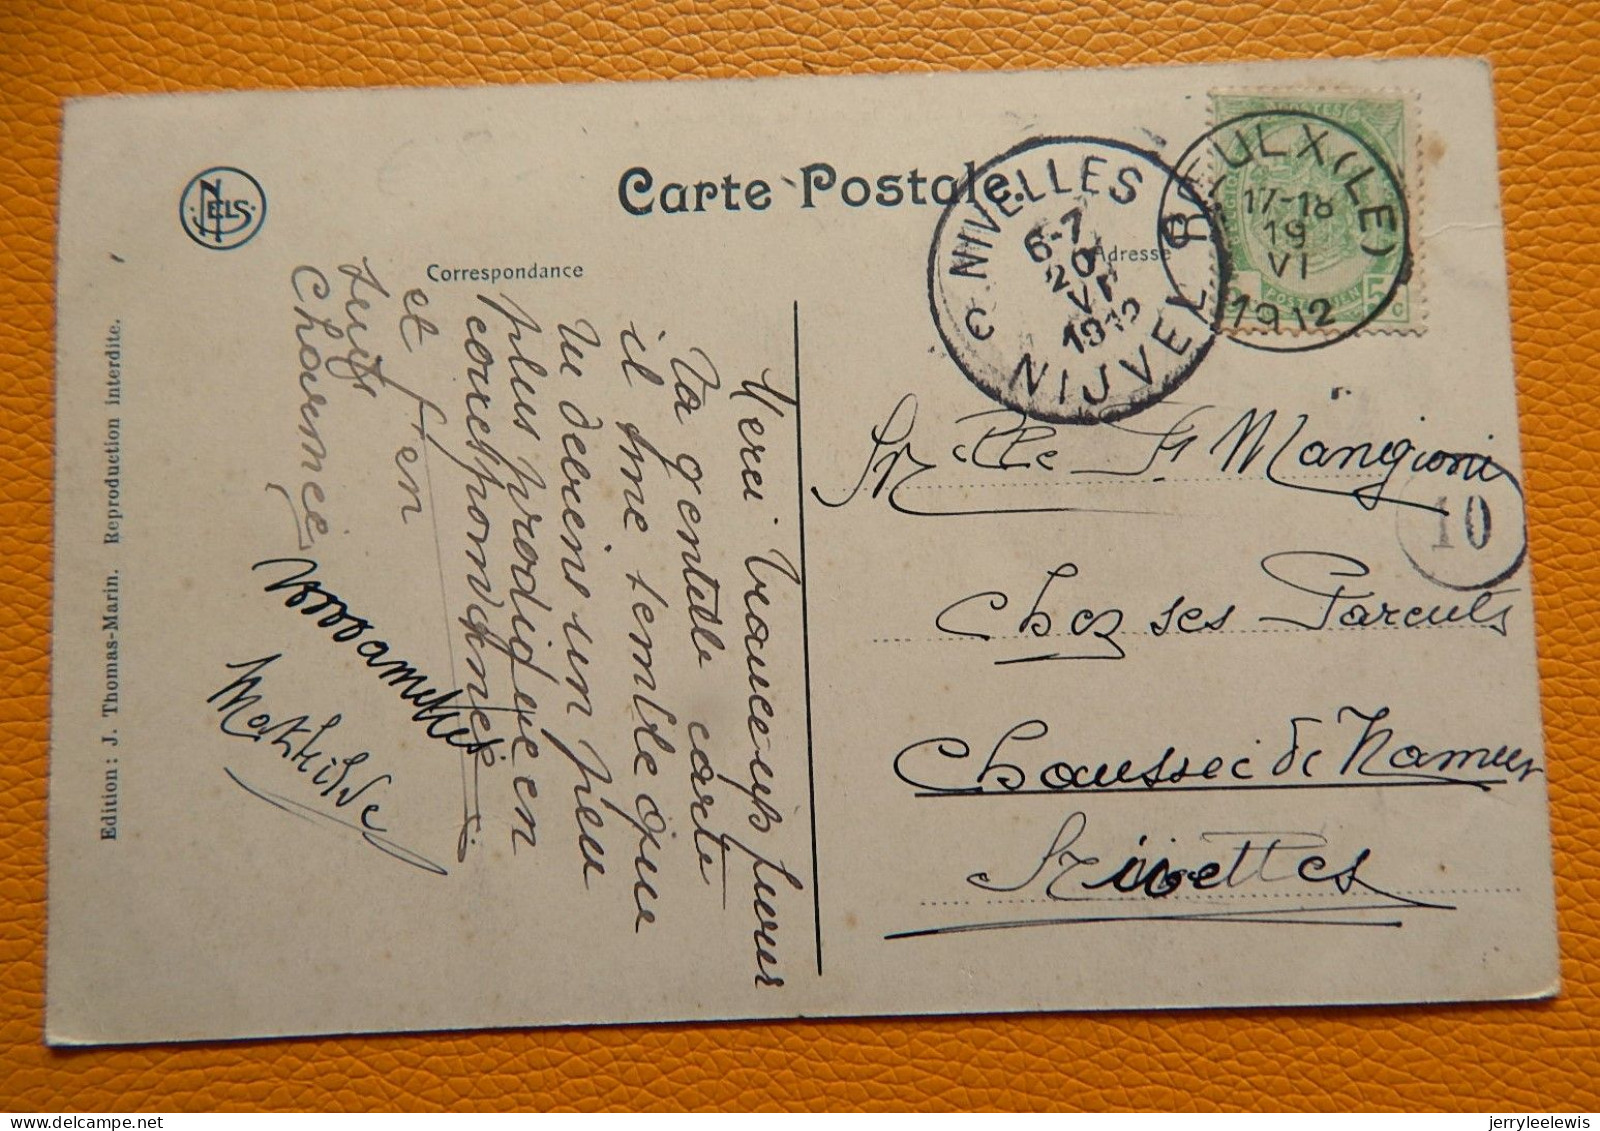 Carte Postale
Correspondance
Adresse
NELS
Edition: J. Thomas-Marin. Reproduction interdite.
POSTES
POSTERIJEN
5 c
REULX (LE)
17-18
19
VI
1912
NIVELLES
6-7
20
VI
1912
C NIJVEL
10
Merci beaucoup pour
ta gentille carte
il me semble que
tu deviens un peu
plus prodigue en
correspondance
et j'en
suis
charmée
Mathilde
Melle F Mangioni
Chez ses Parents
Chaussee de Namur
Nivelles
jerryleelewis